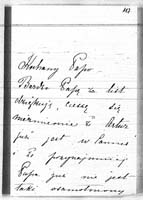 117
Kochany Papo
Bardzo Papę za list
dziękuję, cieszę się
niezmiernie że Artur
już jest w Cannes
i że przynajmniej
Papa już nie jest
taki osamotniony